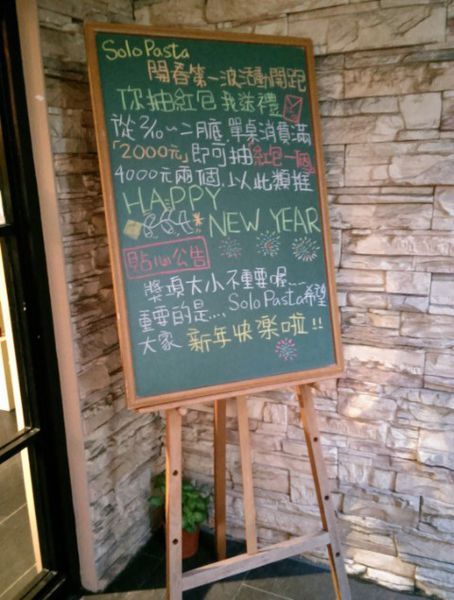 Solo Pasta
開春第一波活動開跑
你抽紅包 我送禮
從2/10~二月底,單桌消費滿
「2000元」即可抽紅包一個,
4000元兩個,以此類推
HAPPY
NEW YEAR
貼心公告
獎項大小不重要喔....
重要的是... Solo Pasta希望
大家 新年快樂啦!!